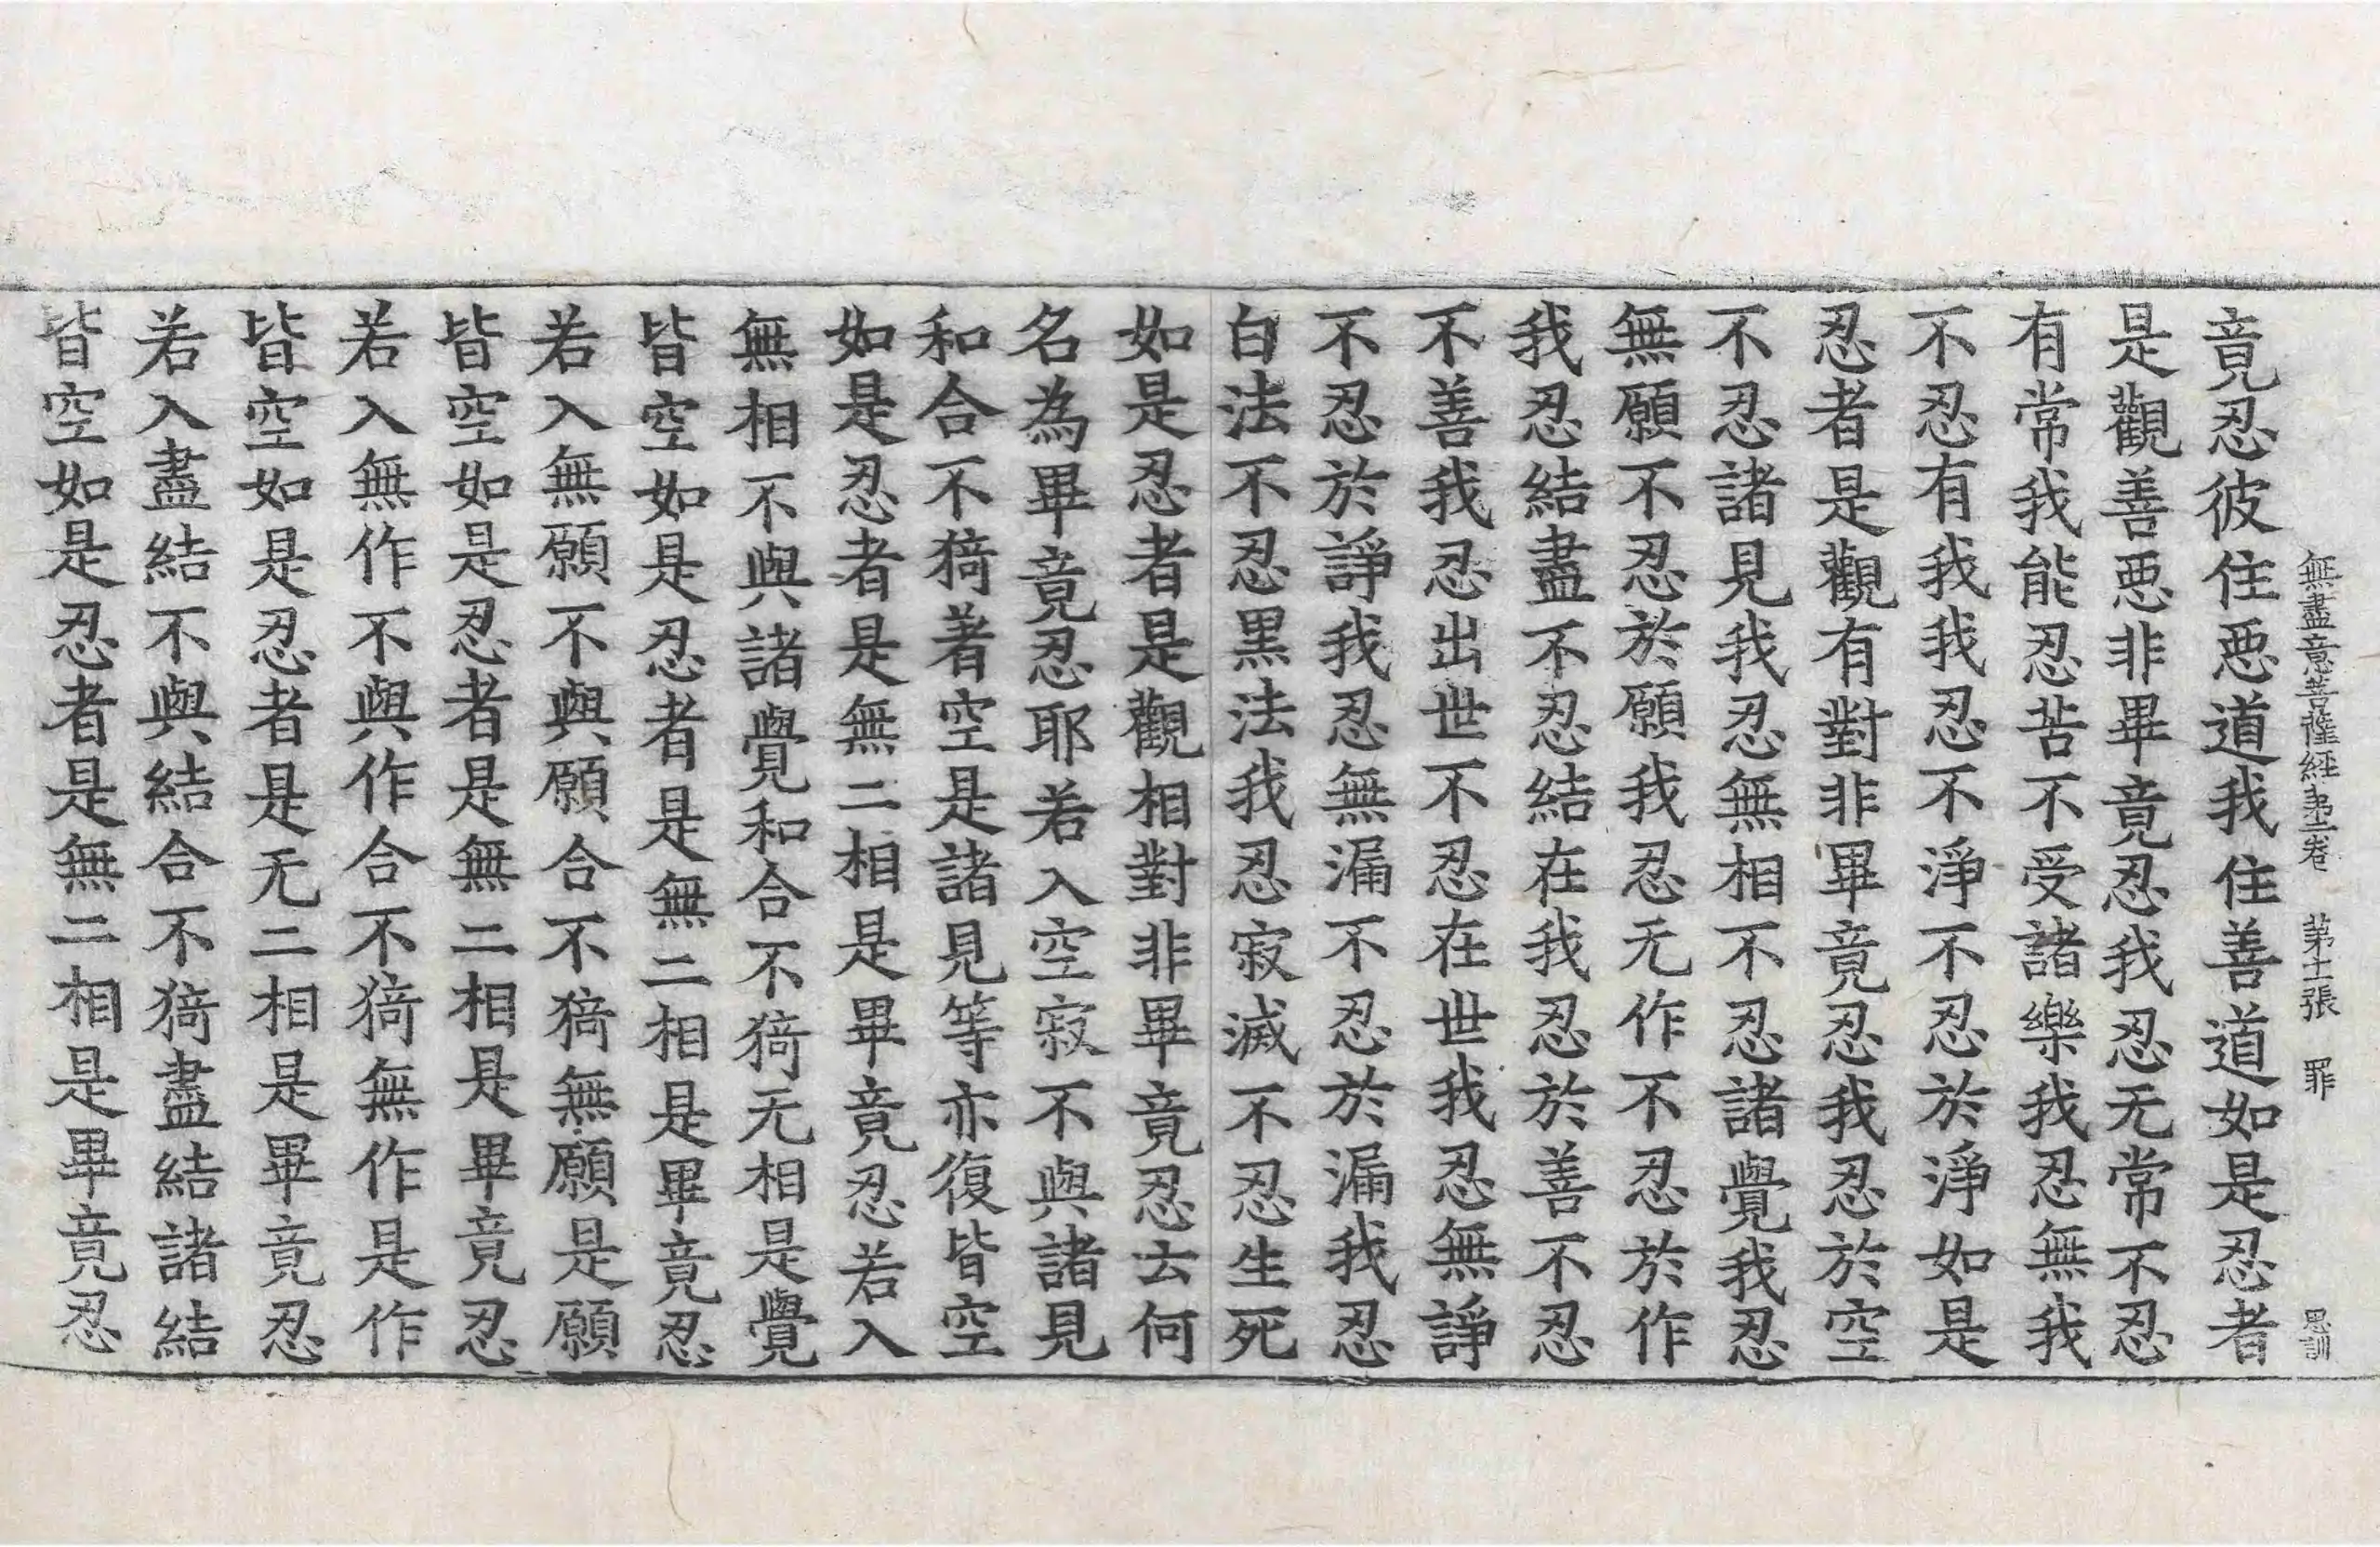 無盡意菩薩經第二卷 第十二張 罪 思訓
竟忍彼住悪道我住善道如是忍者
是觀善悪非畢竟忍我忍无常不忍
有常我能忍苦不受諸樂我忍無我
不忍有我我忍不淨不忍於淨如是
忍者是觀有對非畢竟忍我忍於空
不忍諸見我忍無相不忍諸覺我忍
無願不忍於願我忍无作不忍於作
我忍結盡不忍結在我忍於善不忍
不善我忍出世不忍在世我忍無諍
不忍於諍我忍無漏不忍於漏我忍
白法不忍黒法我忍寂滅不忍生死
如是忍者是觀相對非畢竟忍云何
名為畢竟忍耶若入空寂不與諸見
和合不猗著空是諸見等亦復皆空
如是忍者是無二相是畢竟忍若入
無相不與諸覺和合不猗无相是覺
皆空如是忍者是無二相是畢竟忍
若入無願不與願合不猗無願是願
皆空如是忍者是無二相是畢竟忍
若入無作不與作合不猗無作是作
皆空如是忍者是无二相是畢竟忍
若入盡結不與結合不猗盡結諸結
皆空如是忍者是無二相是畢竟忍